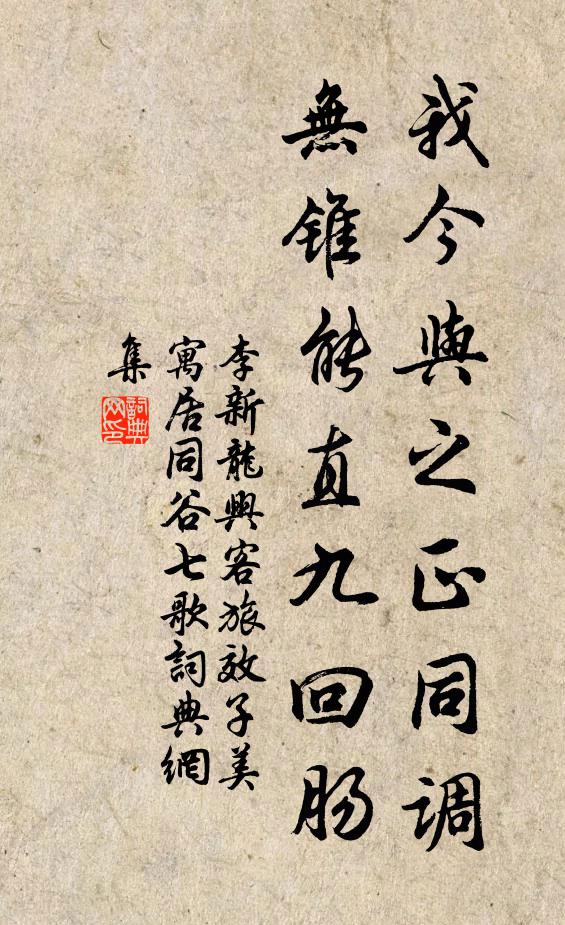 我今與之正同調
無錐能直九回肠
李新龍興客旅效子美
寓居同谷七歌詞典網
集
詞典網印